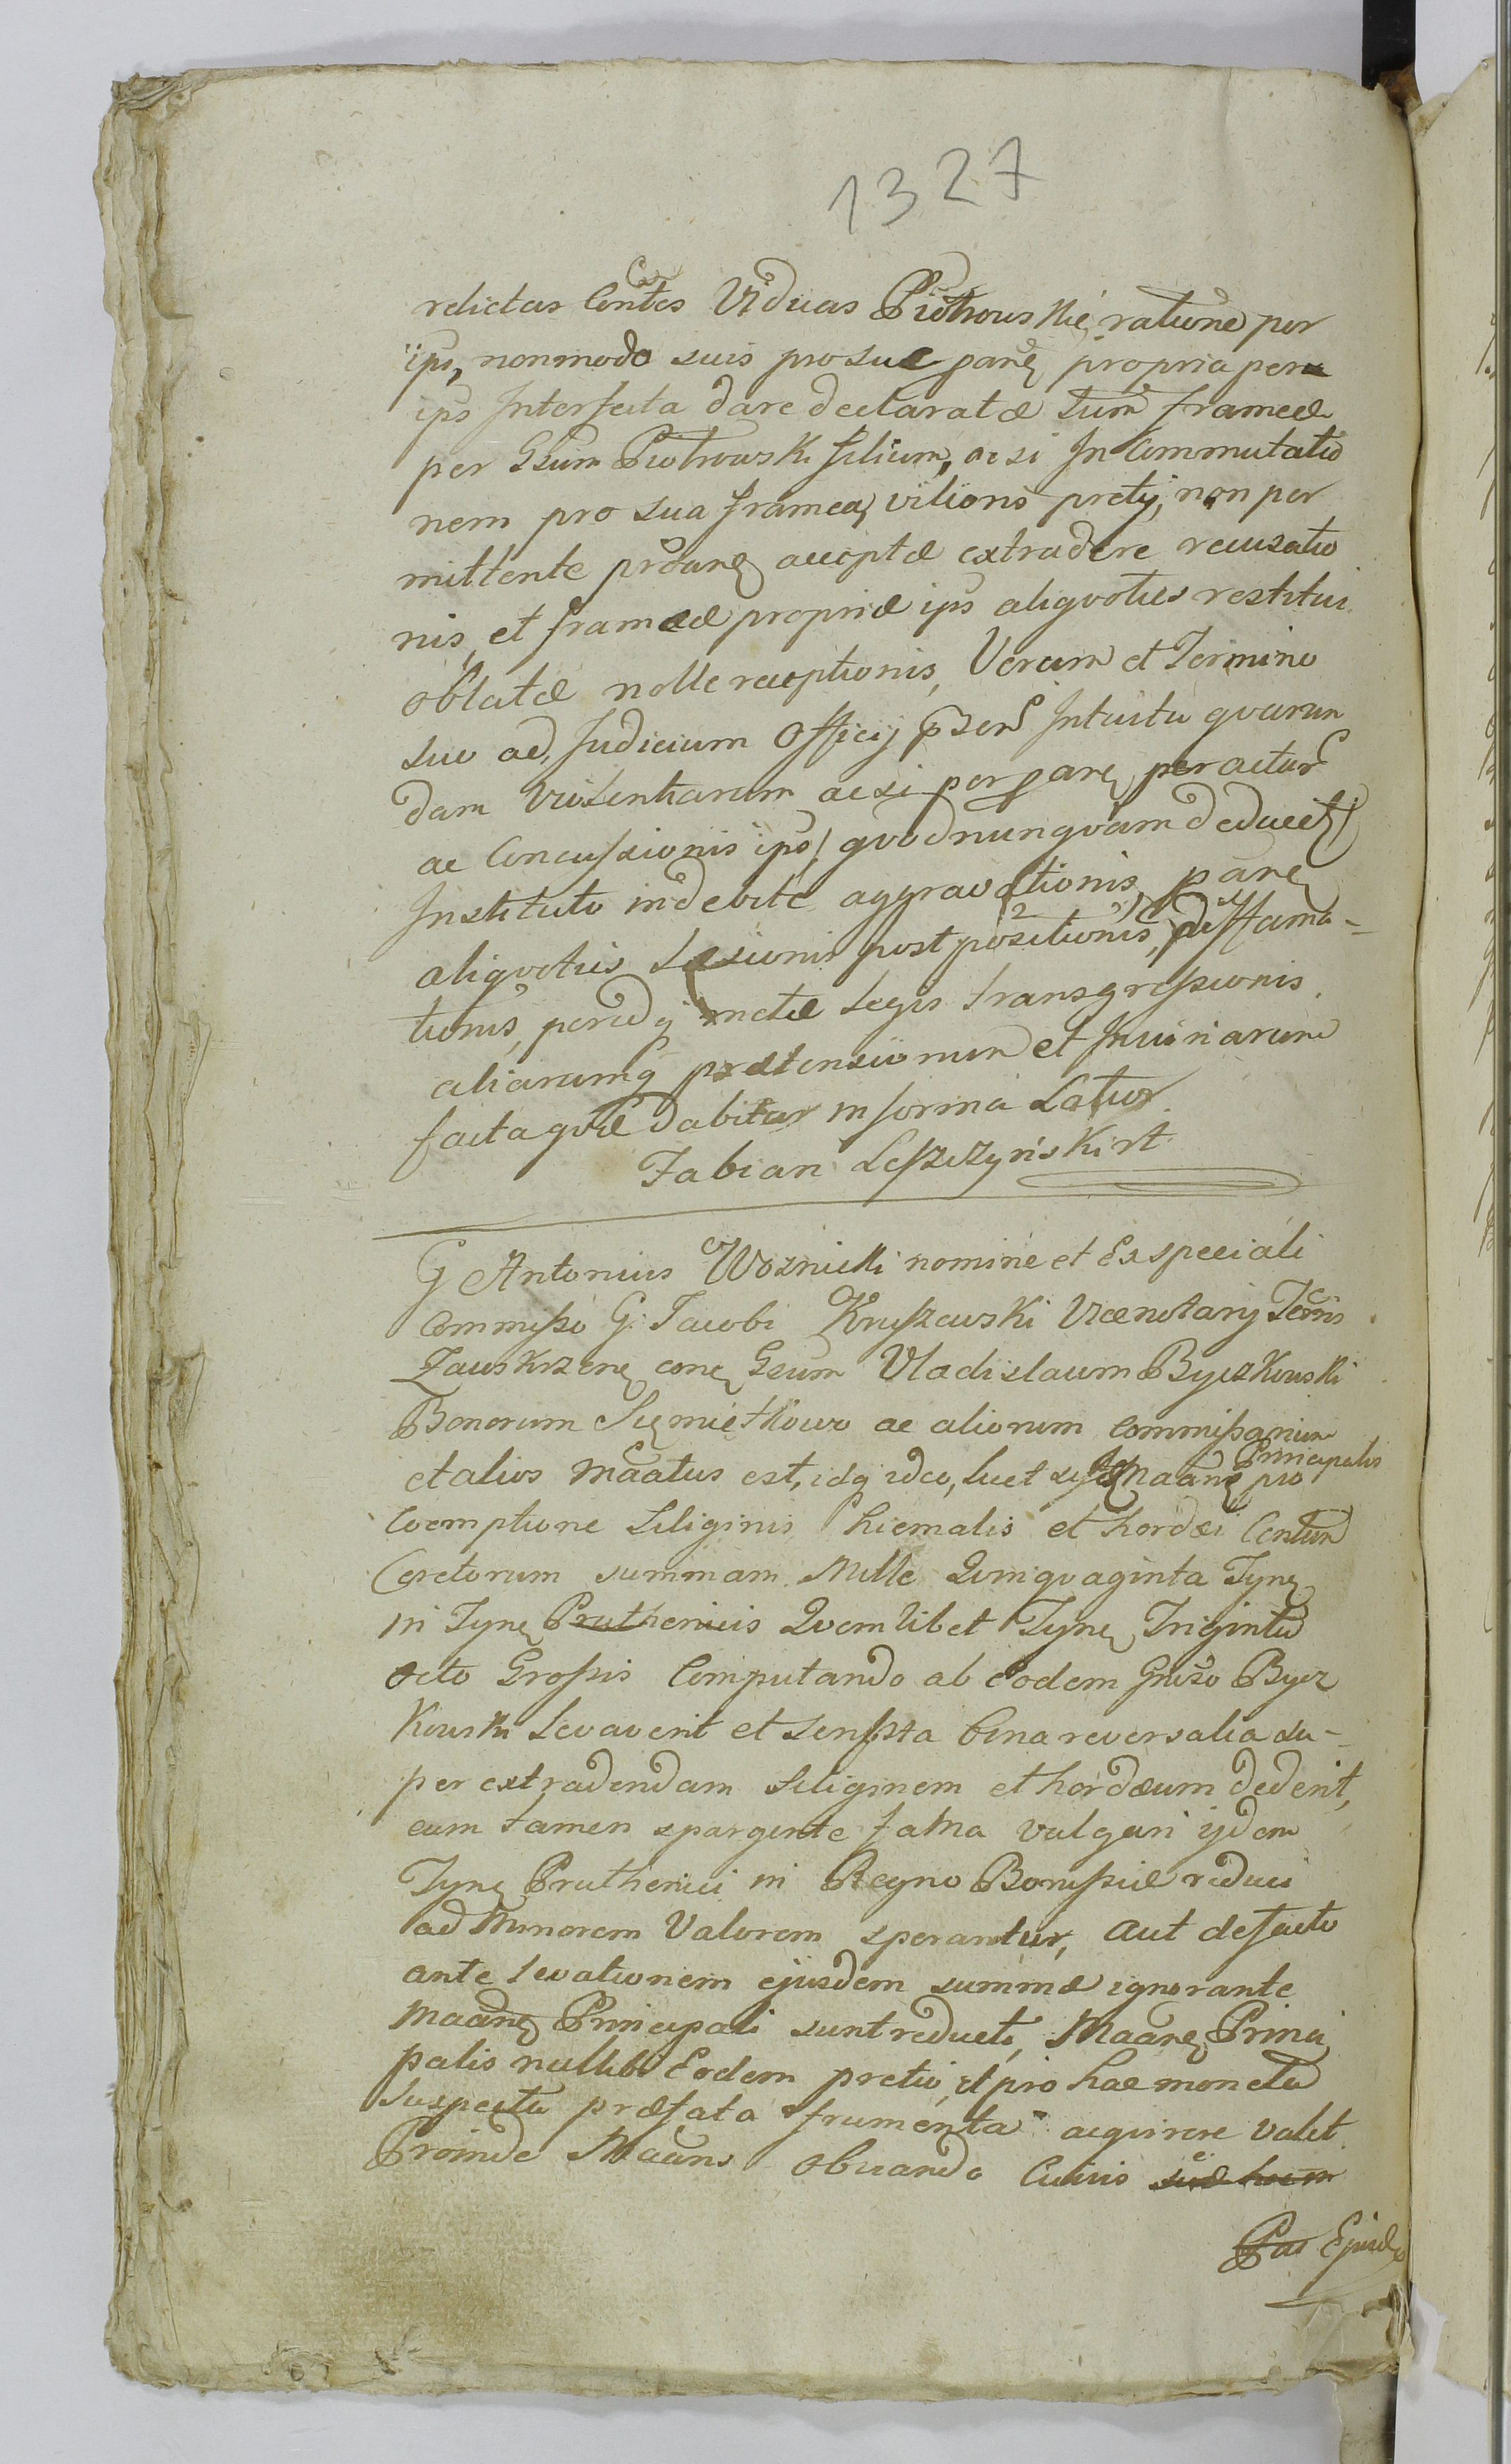 1327
relictas Contes Viduas Piotrowskie ratione per
ips, nonmodo suis pro sue parte propria per
ips Interfecta dare declaratæ tum frameæ
per Gsum Piotrowski filium, acsi In Commutatio
nem pro sua framea vilioris pretij, non per
mittente acceptæ extradere recusatio
nis, et frameæ propriæ ips aliqvoties restitui
oblatæ nolle receptionis, Verum et Termino
suo ad Judicium Officij psens Intuitu qvarun
dam violentiarum acsi per parte peractar
ac Concussionis ips/ qvod nunqvam deducet/
Instituto indebite aggravationis, parte
aliqvoties Læsionis postpositionis, diffama-
tionis, perindq metæ Legis transgressionis
aliarumq prætensionum et Iniuriarum
facta qvæ dabitur in forma Latior.
Fabian Leszczynski rt
G Antonius Woznicki nomine et Ex speciali
Commisso G. Jacobi Kruszewski Vicenotarij Terris
Zawskrzen con Gsum Vladislaum Byczkowski
Bonorum Siemiętkowo ac aliorum Commissarium
et alios Maatus est, idq ideo, licet Maans Principalis pro
Coemptione Siliginis hiemalis et hordei Centum
Coretorum summam Mille Qvinqvaginta Tyn
in Tyn Pruthenicis Qvemlibet Tyn Triginta
octo Grossis Computando ab eodem Gnoso Bycz
kowski Levaverit et scripta bina reversalia su-
per extradendam Siliginem et hordeum dederit,
cum tamen spargente fama vulgari ijdem
Tyn Prutheni in Regno Borussiæ reduci
ad Minorem Valorem sperantur, aut defacto
ante levationem ejusdem summæ ignorante
Maan Principali sunt reducti, Maan Princi
palis nullibi Eodem pretio, et pro hac moneta
suspecta præfata frumenta acqvirere valet.
Proinde Maans obviando Cuivis
Ejusd